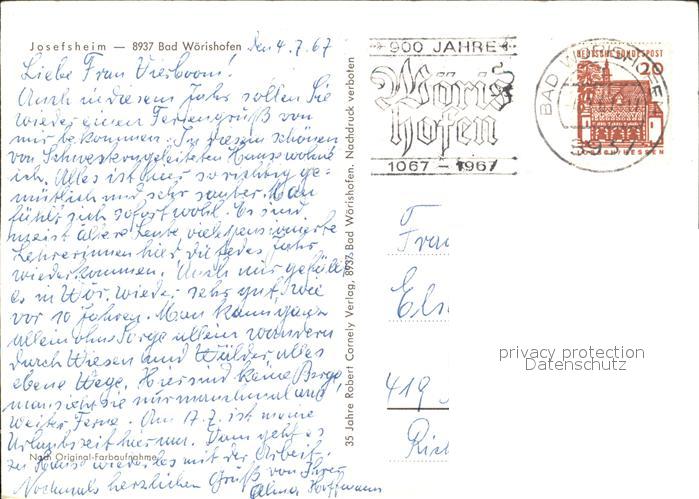 Josefsheim — 8937 Bad Wörishofen den 4.7.67
Liebe Frau Vierboom!
Auch in diesem Jahr sollen Sie
wieder einen Feriengruß von
mir bekommen. In diesem schönen
von Schwestern geleiteten Hause wohne
ich. Alles ist hier so richtig ge=
mütlich und sehr sauber. Man
fühlt sich sofort wohl. Es sind
meist ältere Leute viele pensionierte
Lehrerinnen hier, die jedes Jahr
wiederkommen. Auch mir gefällt
es in Wör. wieder sehr gut, wie
vor 10 Jahren. Man kann ganz
allein ohne Sorge allein wandern
durch Wiesen und Wälder alles
ebene Wege. Hier sind keine Berge
man sieht sie nur manchmal aus
weiter Ferne. Am 17.7. ist meine
Urlaubszeit hier um. Dann geht es
zu Hause wieder los mit der Arbeit.
Nochmals herzlichen Gruß von Ihrer
Alma Hoffmann
Nach Original-Farbaufnahme
35 Jahre Robert Cornely Verlag, 8937 Bad Wörishofen. Nachdruck verboten
900 JAHRE
Wöris
hofen
1067 – 1967
BAD WÖRISHOFEN
8937
DEUTSCHE BUNDESPOST
20
Frau
Els
419
privacy protection
Datenschutz